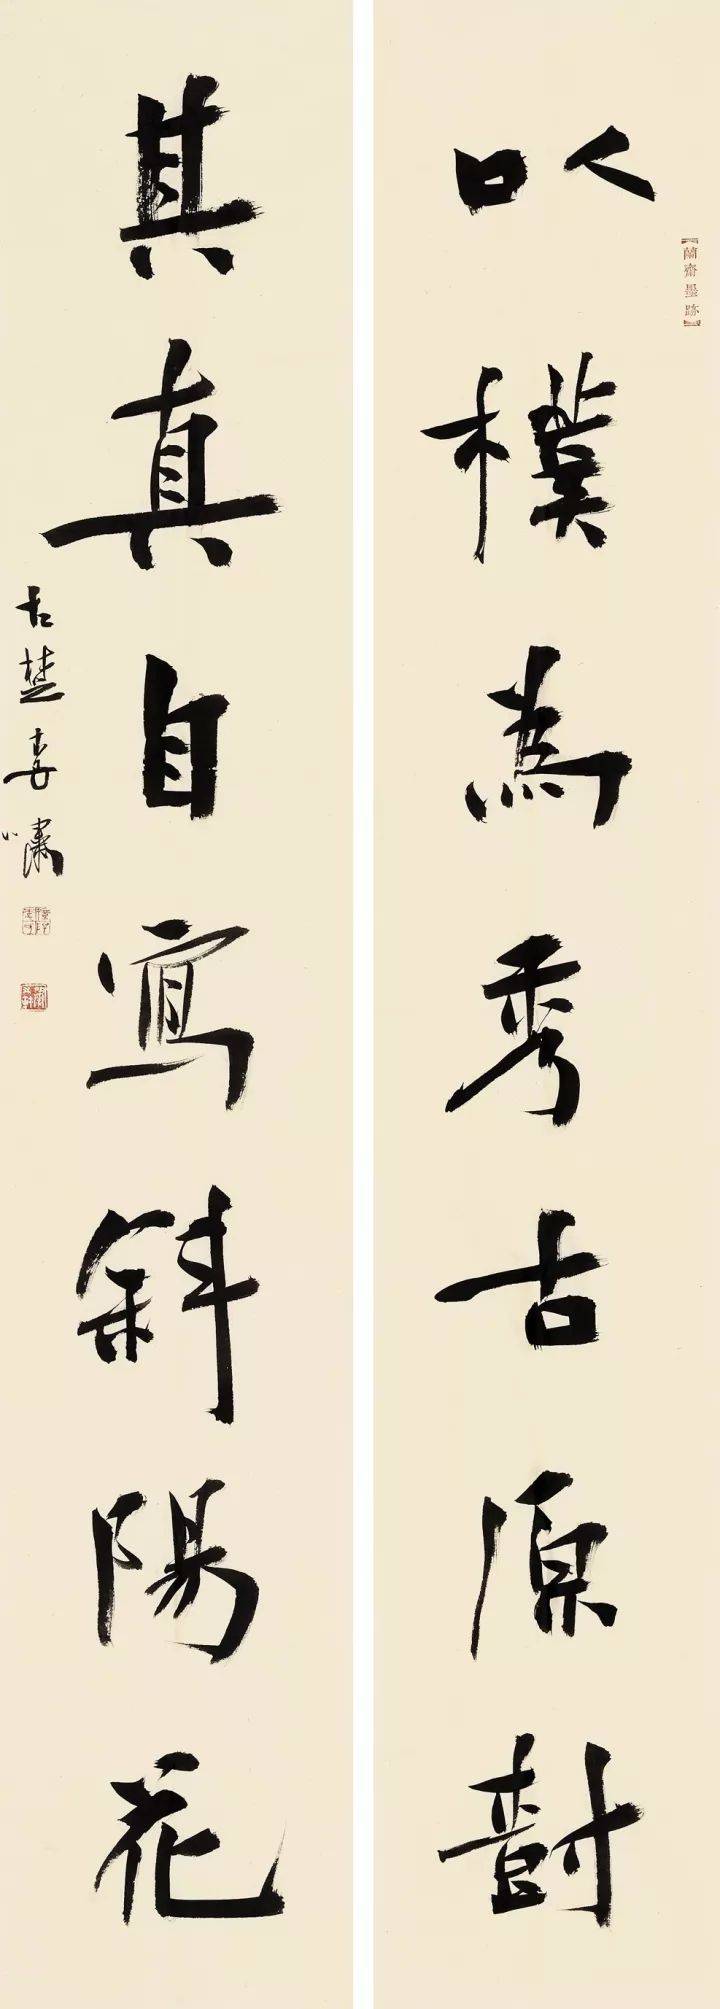 【蘭齋墨跡】
以樸為秀古原樹
其真自寫斜陽花
古楚李嘯